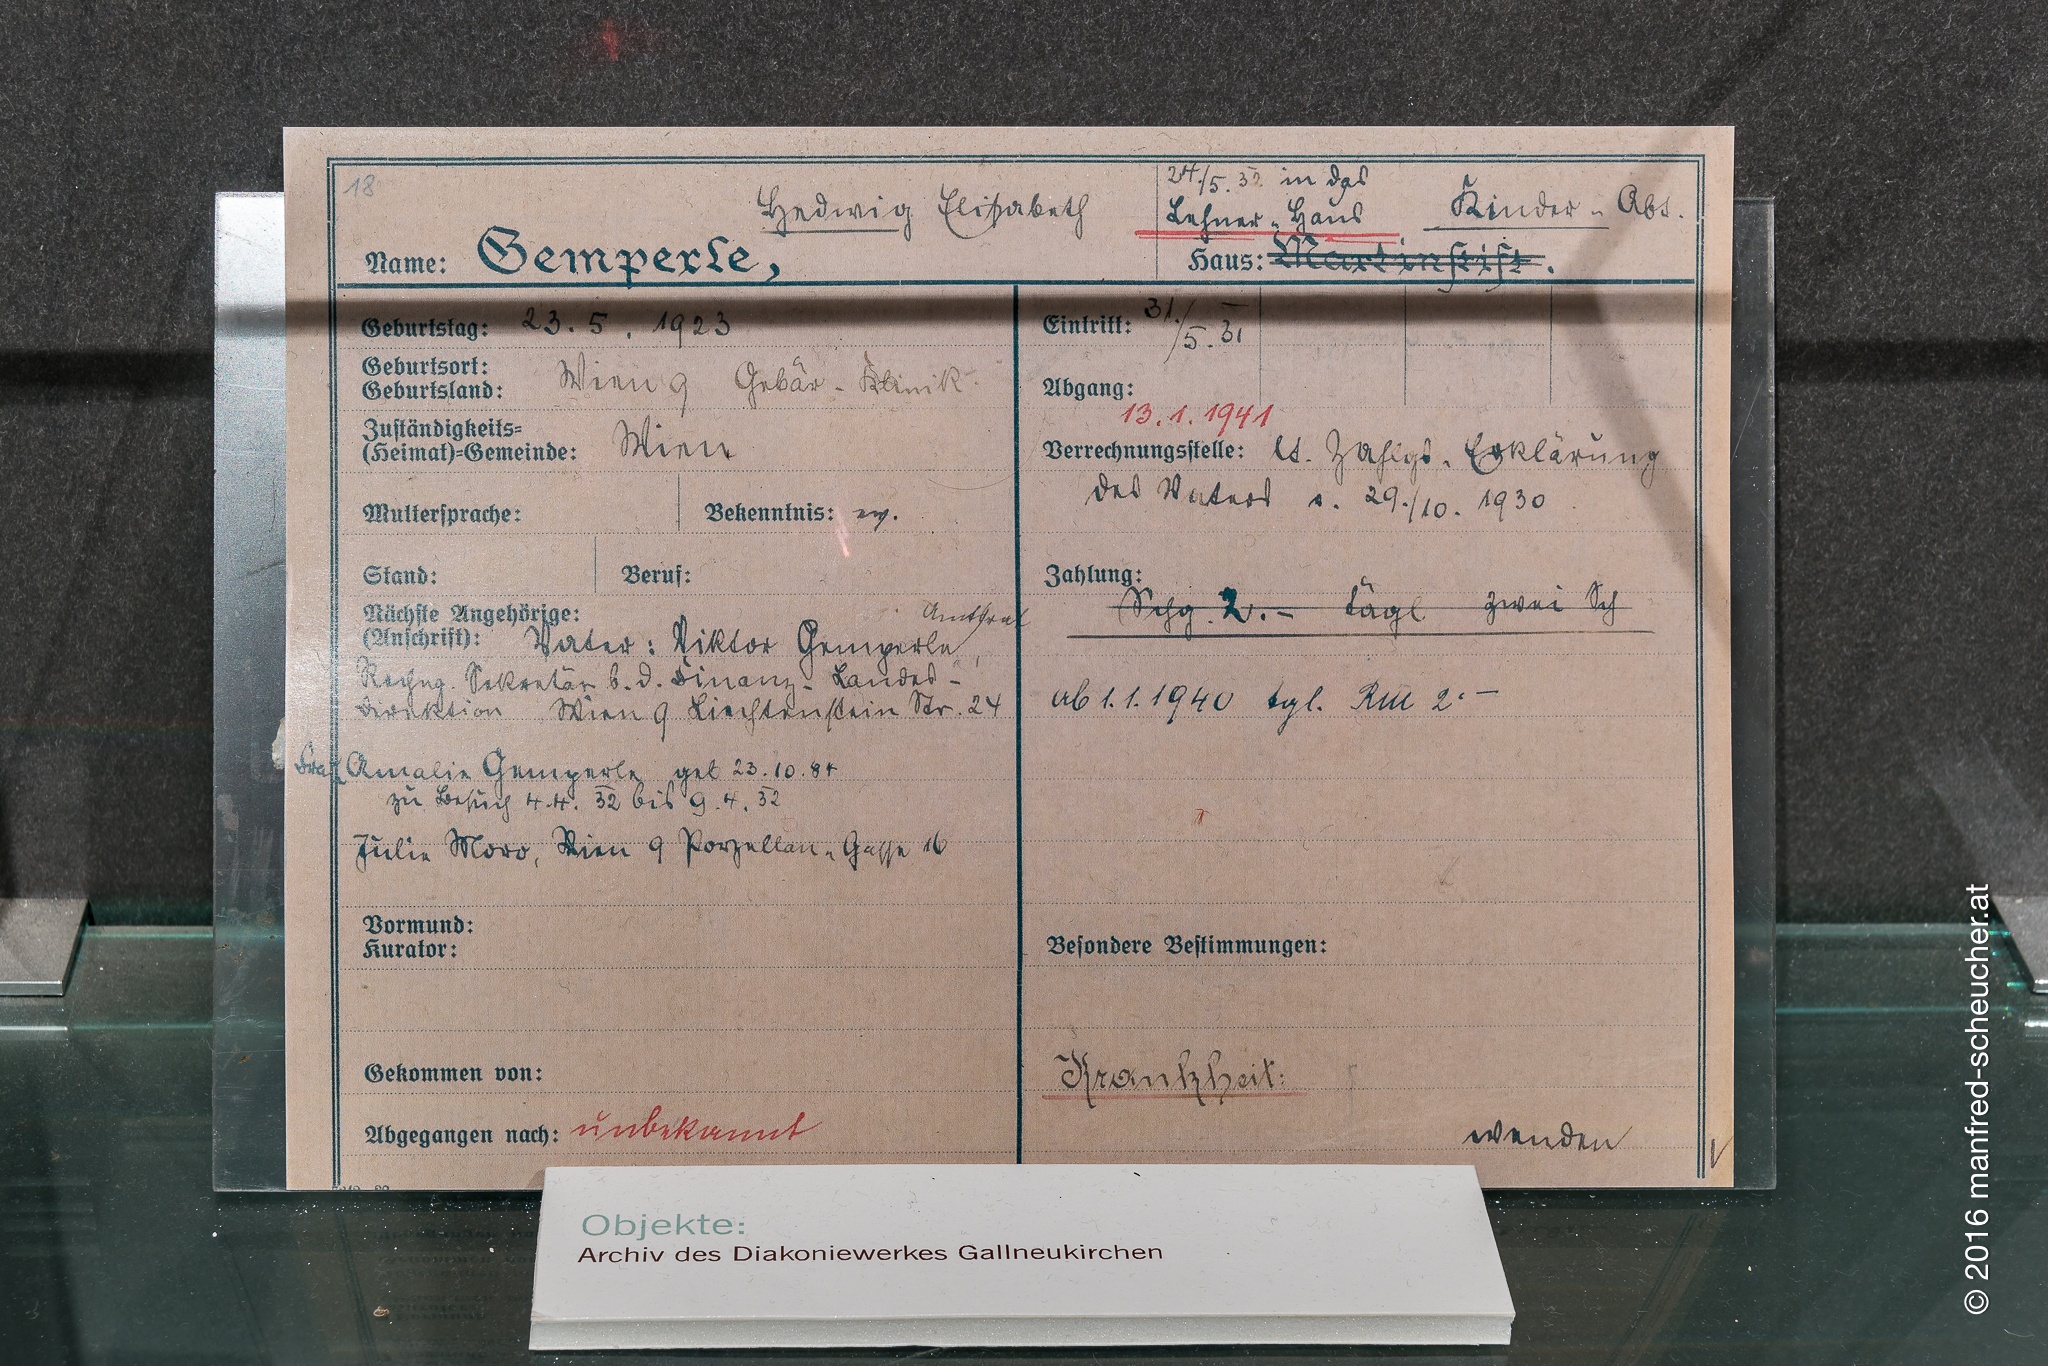 18
Hedwig Elisabeth
24./5. 32 in das
Lehner-Haus
Kinder-Abt.
Name: Gemperle,
Haus: Martinstift.
Geburtstag: 23. 5. 1923
Eintritt: 31./5. 31
Geburtsort:
Geburtsland: Wien 9 Gebär-Klinik
Abgang:
13. 1. 1941
Zuständigkeits=
(Heimat)=Gemeinde: Wien
Verrechnungsstelle: lt. Zahlgs.-Erklärung
des Vaters v. 29./10. 1930
Muttersprache:
Bekenntnis: ev.
Stand:
Beruf:
Zahlung:
Schg. 2.- tägl zwei Sch
Nächste Angehörige:
Amtsrat
(Anschrift): Vater: Viktor Gemperle,
Rechng. Sekretär b. d. Finanz-Landes-
direktion Wien 9 Liechtenstein Str. 24
ab 1. 1. 1940 tgl. RM 2.-
Frau Amalie Gemperle geb 23. 10. 84
zu Besuch 4. 4. 32 bis 9. 4. 32
Julie Moro, Wien 9 Porzellan-Gasse 16
Vormund:
Kurator:
Besondere Bestimmungen:
Gekommen von:
Krankheit:
Abgegangen nach: unbekannt
wenden
Objekte:
Archiv des Diakoniewerkes Gallneukirchen
© 2016 manfred-scheucher.at